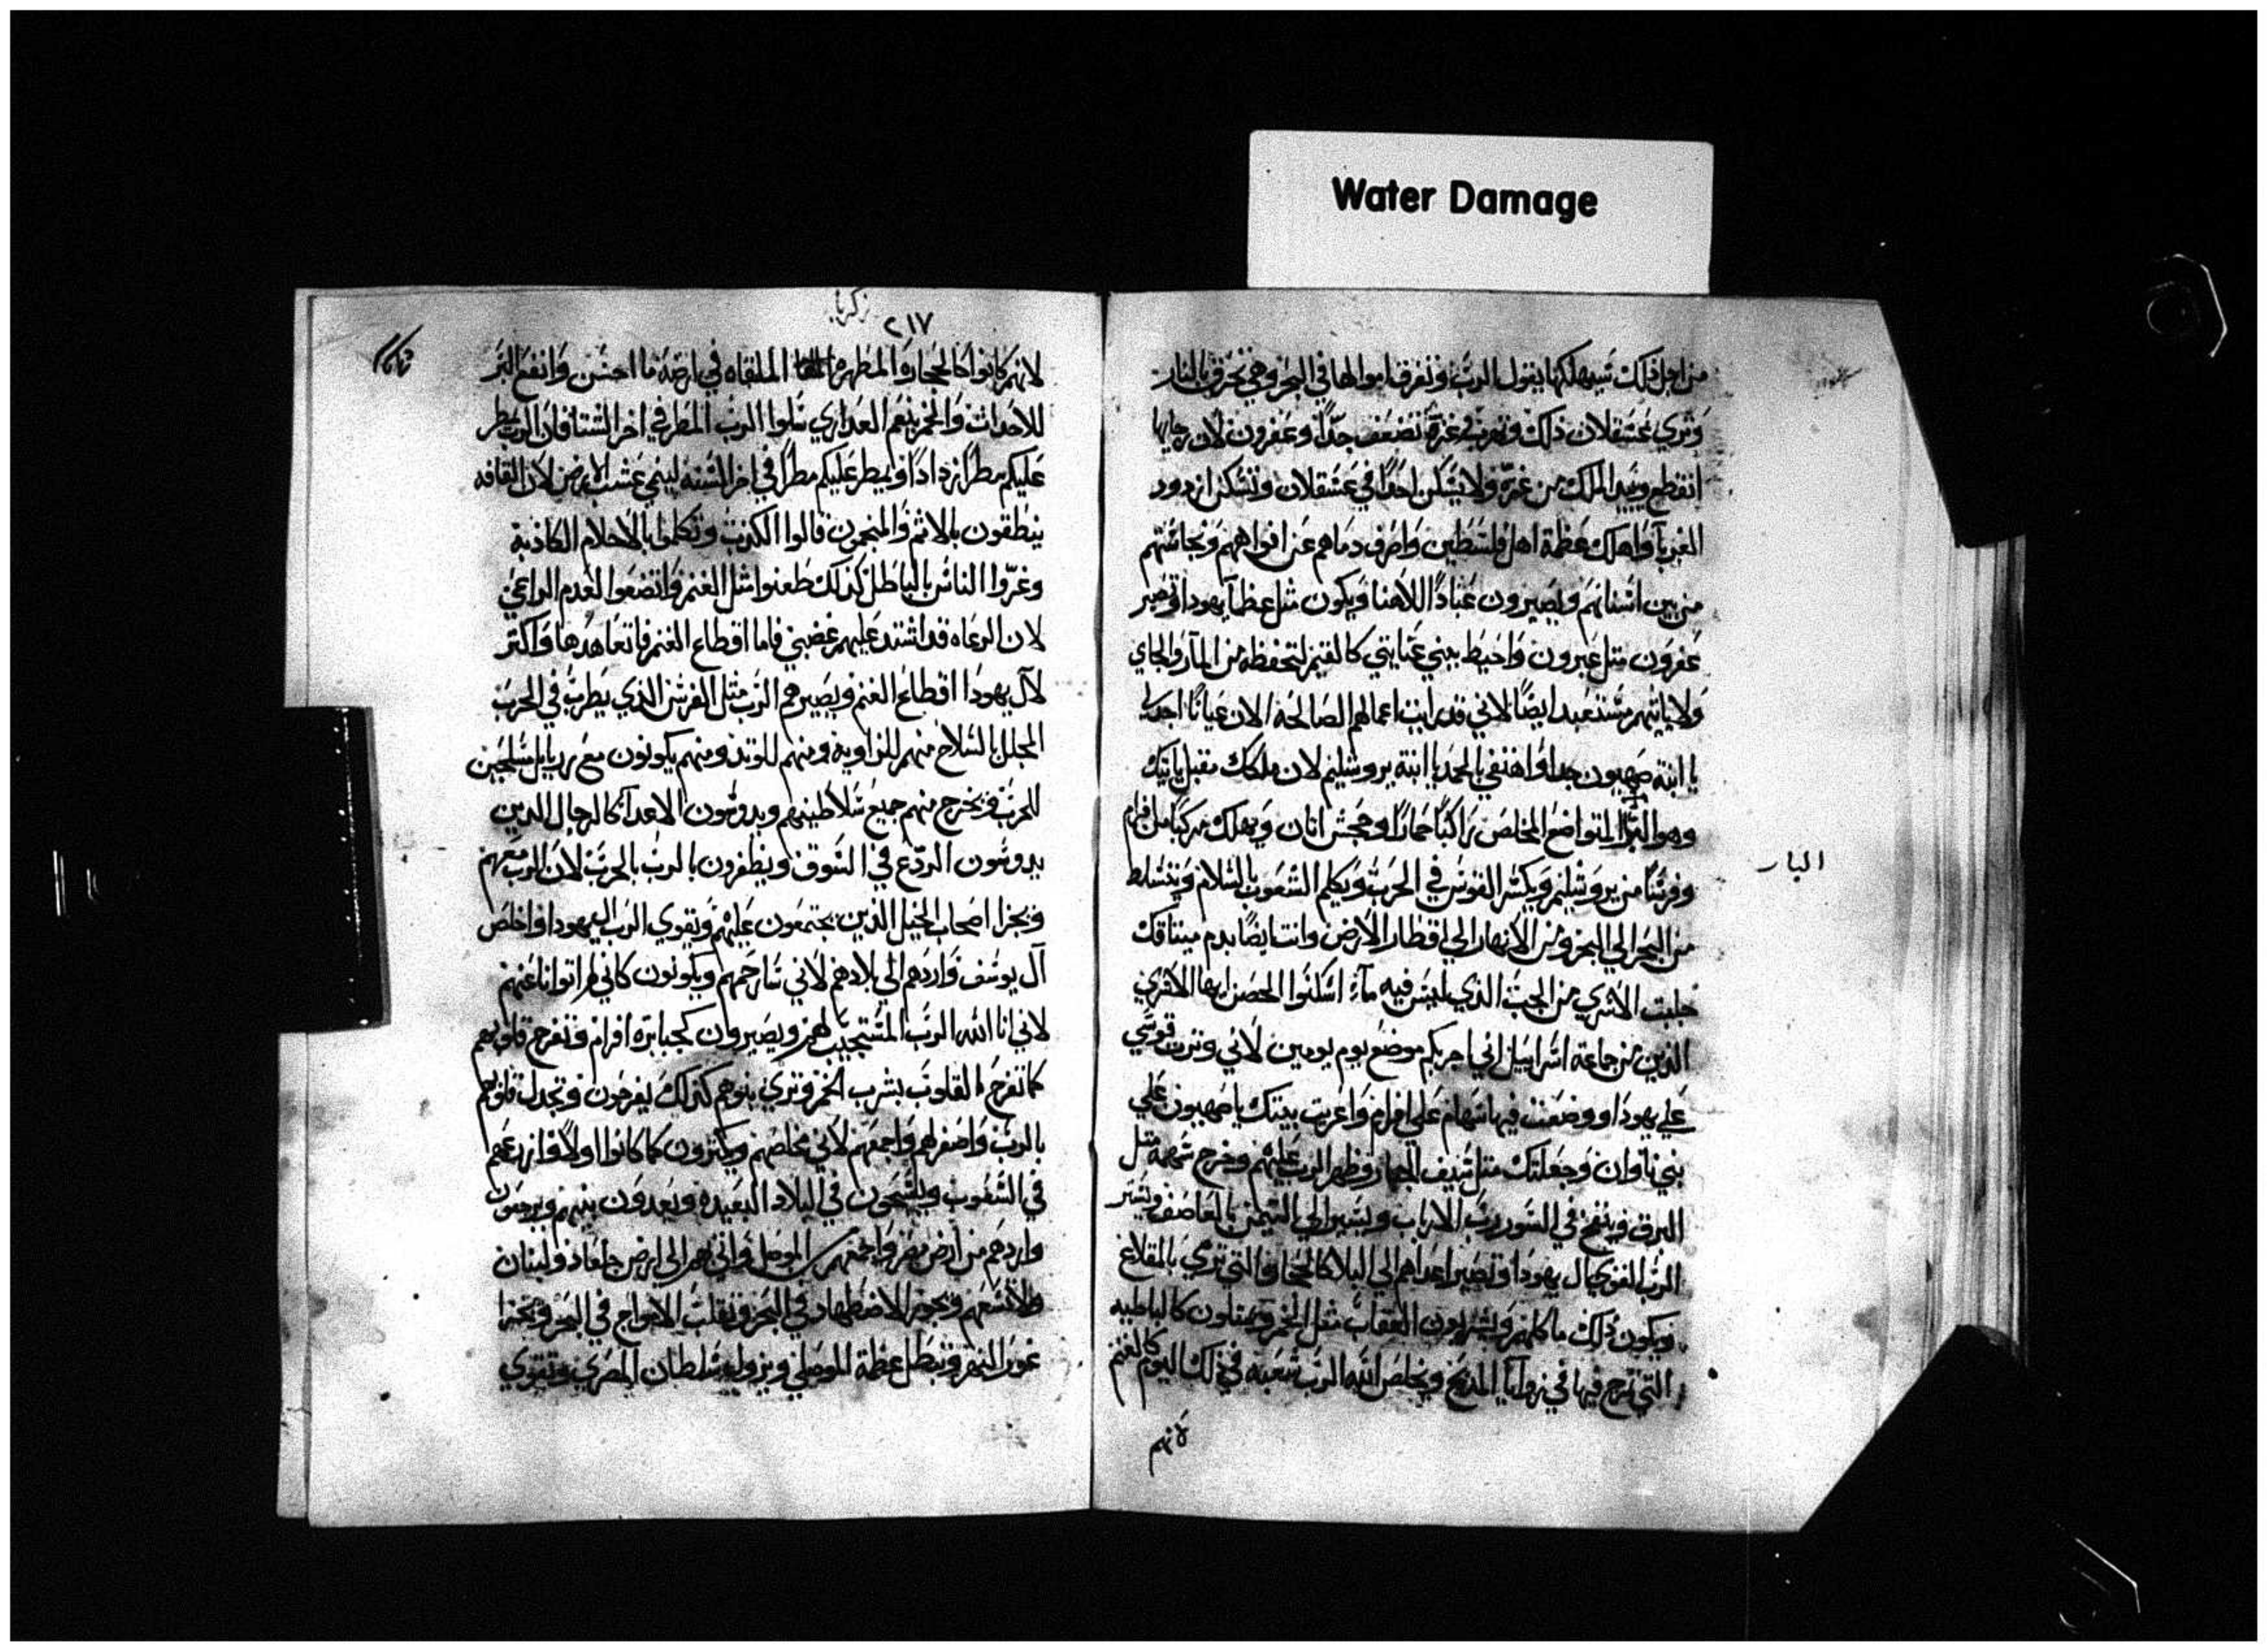 Water Damage
من اجل ذلك سيهلكها يقول الرب وتغرق اموالها في البحر وهي تحرق بالنار
وترى عسقلان ذلك وتهرب وغزة تضعف جدًا وعفرون لان رجايها
انقطع ويبيد الملك من غزة ولا يسكن احدًا في عسقلان وتسكن ازدود
الغربآ واهلك عظمة اهل فلسطين واصرف دماهم عن افواههم ونجاستهم
من بين اسنانهم ويصيرون عبادًا للاهنا ويكون مثل عظمآ يهودا وتصير
عفرون مثل عبرون واحيط ببيتي عنايتي كالقيم لتحفظه من المآر والجاي
ولا ياتيهم مستعبد ايضًا لاني قد رايت اعمالهم الصالحه الان عيانًا اجدلي
يا ابنة صهيون جدا واهتفي بالحمد يا ابنة يروشليم لان ملكك مقبل ياتيك
وهو البرا المتواضع المخلص راكبًا حمارًا وجحش اتان ويهلك مركبًا من افرام
البار
وفرسًا من يروشليم ويكسر القوس في الحرب ويكلم الشعوب بالسلام ويتسلط
من البحر الي البحر ومن الانهار الي اقطار الارض وانت ايضًا بدم ميتاقك
حلبت الاسري من الجب الذي ليس فيه مآء اسكنوا الحصن ايها الاسري
الذين من جماعة اسراييل اني اجزيكم موضع يوم يومين لاني وترت قوسي
علي يهودا ووضعت فيها سهام علي افرام واعربت بنيتك يا صهيون علي
بني ناوان وجعلتك مثل سيف الجبار وظهر الرب عليهم وخرج سهمه مثل
البرق وينفخ في السور رب الارباب ويسير الي التيمن بالعاصف ويستر
الرب القوي ال يهودا وتصير اعداهم الي البلا كالحجارة التي ترمي بالمقلاع
ويكون ذلك ماكلهم ويشربون العقاب مثل الخمر ويمتلون كالباطيه
التي تمزج فيها في زوايا المذبح ويخلص الله الرب شعبه في ذلك اليوم كالغنم
لانهم
زكريا
٢١٧
لانهم كانوا كالحجارة المطهره الملقاه في ارضه ما احسن وانفع البر
للاحداث والخمر ينعم العداري سلوا الرب المطر في اخر الشتا فان الرب يمطر
عليكم مطرًا زدادًا ويمطر عليكم مطرًا في اخر السنه لينمي عشب الارض لان القافه
ينطقون بالاثم والمنجمون قالوا الكذب وتكلموا بالاحلام الكاذبة
وغرّوا الناس بالباطل كذلك طعنوا مثل الغنم واتضعوا لعدم الراعي
لان الرعاه قد اشتد عليهم غضبي فاما اقطاع الغنم فاتعاهدها واكتر
لآل يهودا اقطاع الغنم ويصيرهم الرب مثل الفرس الذي يطرب في الحرب
المجلل بالسلاح منهم للزاوية ومنهم للوتد ومنهم يكونون مع زبابل متسلحين
للحرب ويخرج منهم جميع سلاطينهم ويدوسون الاعدآ كالرجال الدين
يدوسون الردغ في السوق ويظفرون بالرب بالحرب لان الرب معهم
ويجزا اصحاب الخيل الذين يجتمعون عليهم ويقوي الرب اليهودا واخلص
آل يوسف واردهم الي بلادهم لاني سارحمهم ويكونون كاني لم اتوانا عنهم
لاني انا الله الرب المستجيب لهم ويصيرون كجبابرة افرام وتفرح قلوبهم
كما تفرح القلوب بشرب الخمر وتري بنوهم كذلك يفرحون وتجدل قلوبهم
بالرب واصفر لهم واجمعهم لاني مخلصهم ويكثرون كما كانوا اولًا وازرعهم
في الشعوب ويشيحون في البلاد البعيده ويعدون بنيهم ويرجعون
واردهم من ارض مصر واجمعهم من الموصل واتي بهم الي ارض جلعاد ولبنان
ولا تسعهم ويجوز الاضطهاد في البحر وتقلب الامواج في البحر ويخزا
غور النهر وتبطل عظمة الموصلي ويزول سلطان المصري وتقوي